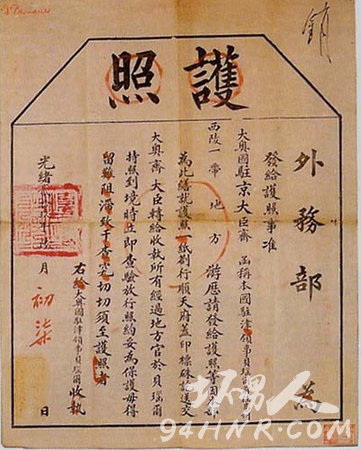 護照
外務部 為
發給護照事准
大奧國駐京大臣齊 函稱本國駐津領事貝瑞爾
西陵一帶地方 游歷請發給護照等因本部
為此繕就護照一紙劄行順天府蓋印標硃訖送交
大奧齊大臣轉給收執所有經過地方官於貝瑞爾
持照到境時立即查驗放行照約妥為保護毋得
留難阻滯致干查究切切須至護照者
右給大奧國駐津領事貝瑞爾收執
光緒 月初柒日
銷
94HNR.COM